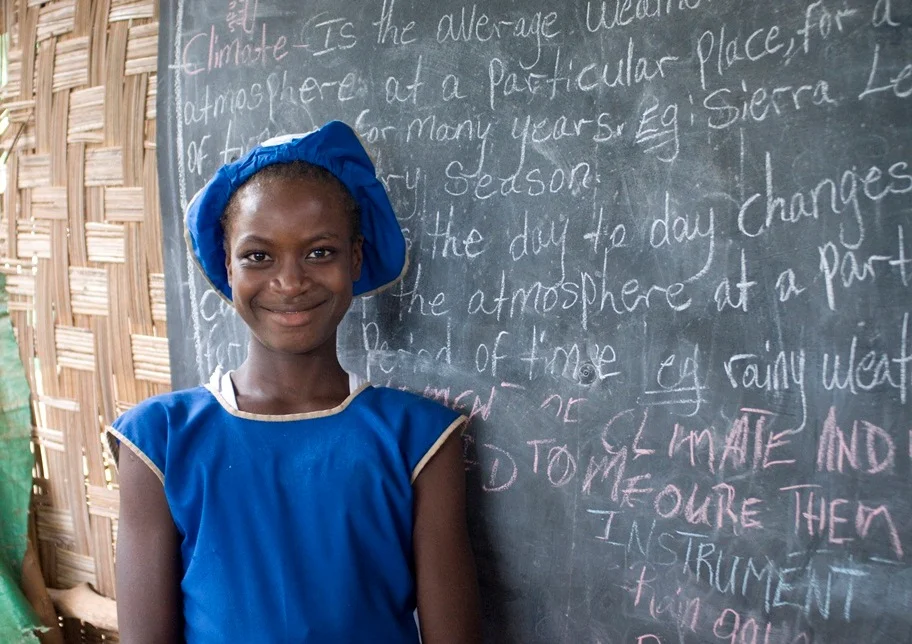 Climate - Is the average weather
atmosphere at a particular place, for a
of for many years. Eg: Sierra Le
ry season
the day to day changes
the atmosphere at a part
Period of time eg rainy weat
MENT OF CLIMATE AND
D TO MEOURE THEM
INSTRUMENT
rain gau